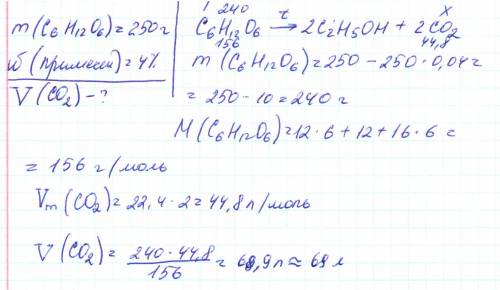 m(C₆H₁₂O₆)=250г
ω(примеси)=4%
V(CO₂)-?
240 x
C₆H₁₂O₆ →t 2C₂H₅OH + 2CO₂
156 44,8
m(C₆H₁₂O₆)=250-250·0,04=
=250-10=240 г
M(C₆H₁₂O₆)=12·6+12+16·6=
=156 г/моль
Vm(CO₂)=22,4·2=44,8л/моль
V(CO₂)= 240·44,8/156 = 68,9л≈68л